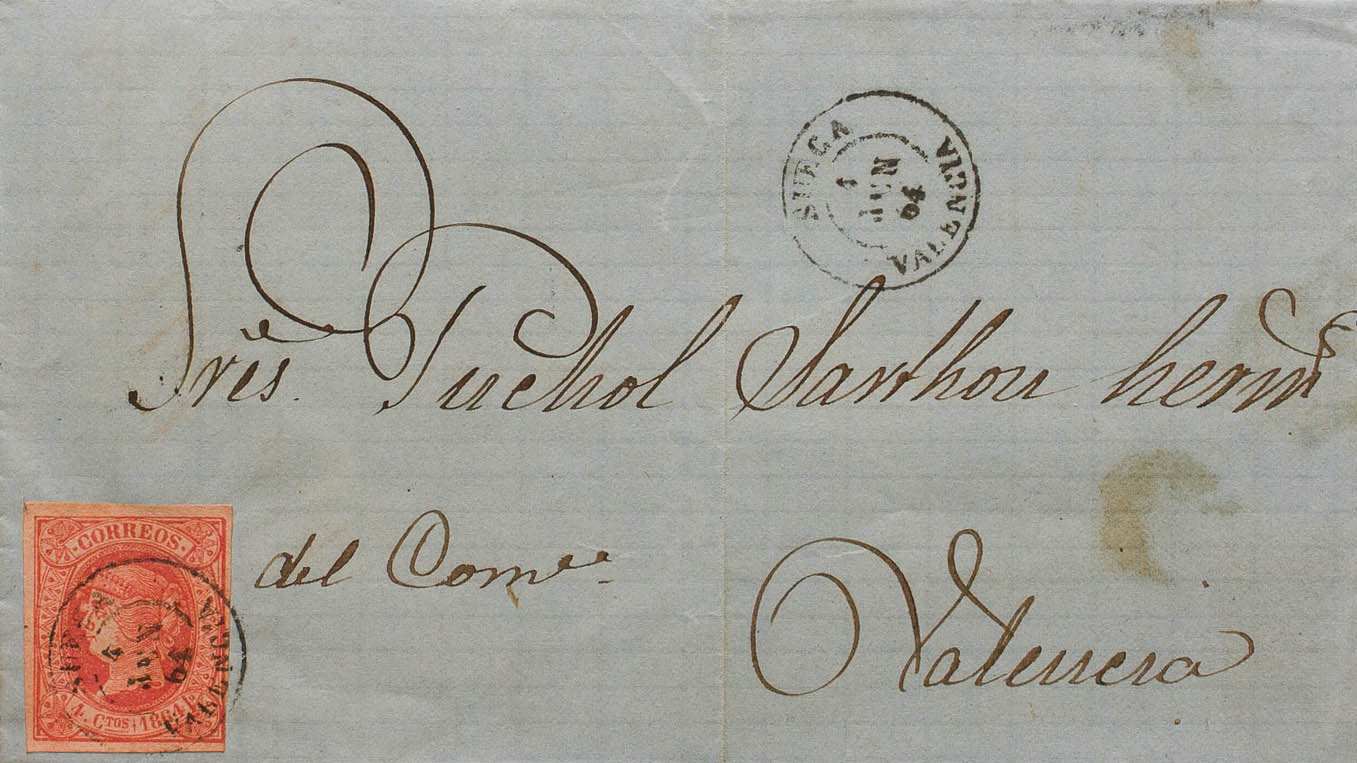 SUECA
4
JUN
64
VALENCIA
Sres. Puchol Sarthou hermˢ
del Comᵉᵒ
Valencia
CORREOS.
SUECA
4
JUN
64
VALENCIA
4. CTOS 1864